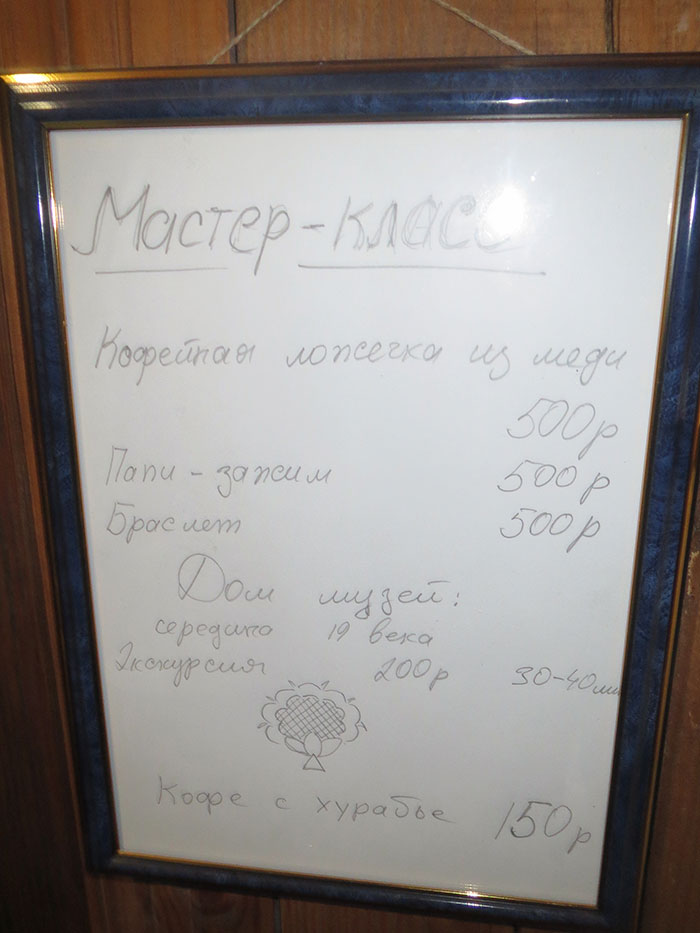 Мастер-класс
Кофейная ложечка из меди
500р
Папи-зажим 500р
Браслет 500р
Дом музей:
середина 19 века
Экскурсия 200р 30-40мин
Кофе с хурабье 150р